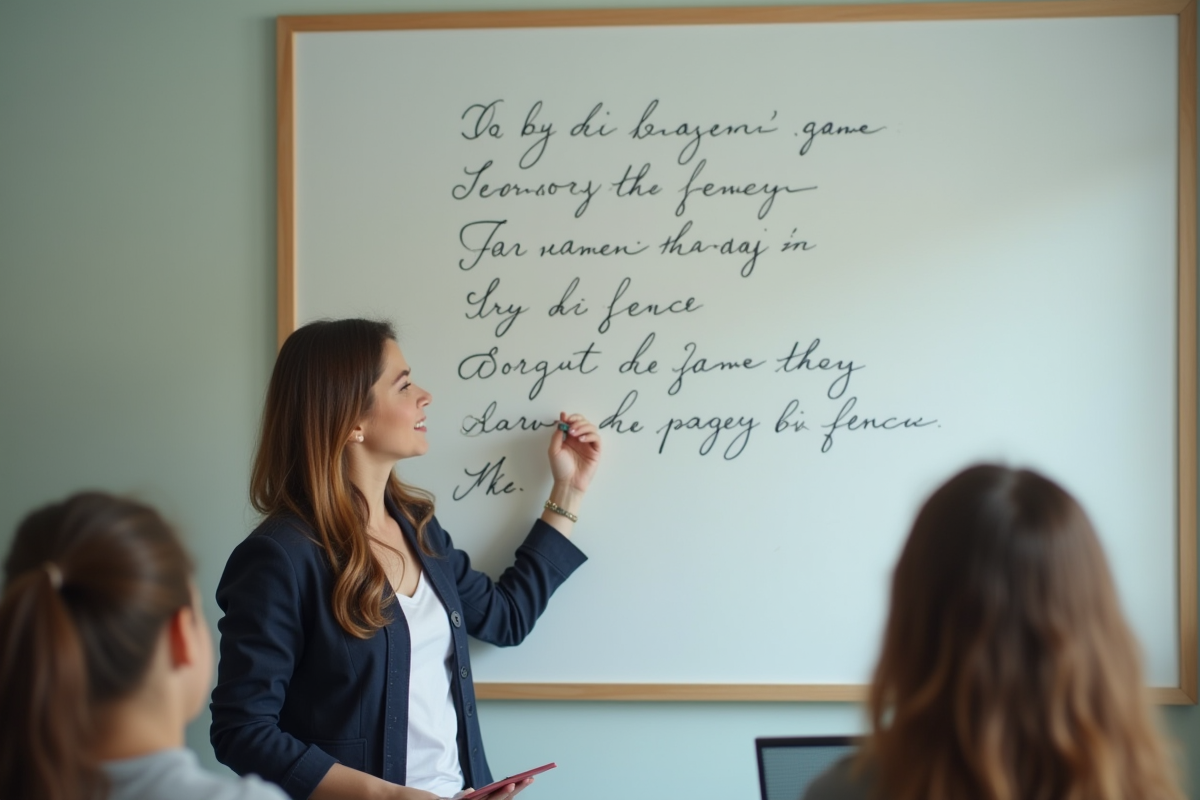 Da by dri brazemi' game
Seornorz the femeyn
Far namen tha-daj in
Sry dri fence
Sorgut dre Jame they
Sarv dre pagey bir fencu.
Mke.